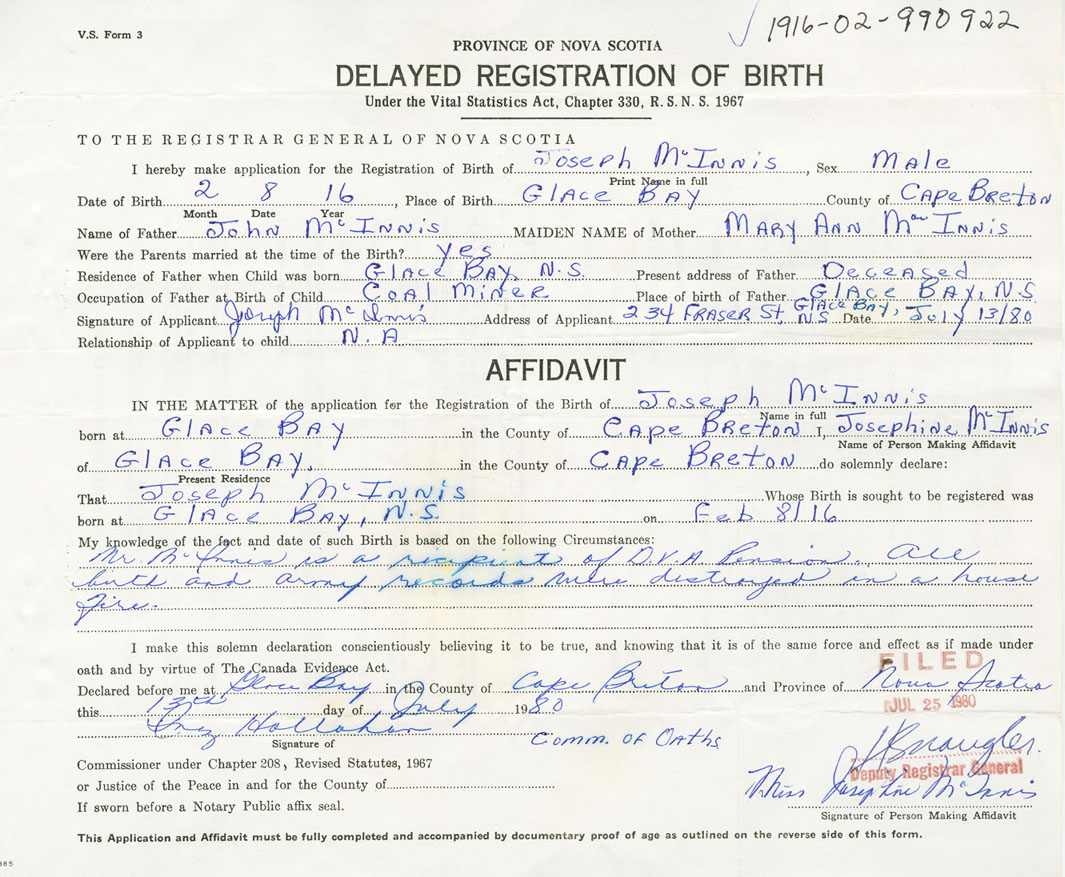 V.S. Form 3
1916-02-990922
PROVINCE OF NOVA SCOTIA
DELAYED REGISTRATION OF BIRTH
Under the Vital Statistics Act, Chapter 330, R.S.N.S. 1967
TO THE REGISTRAR GENERAL OF NOVA SCOTIA
I hereby make application for the Registration of Birth of Joseph McInnis, Sex Male
Print Name in full
Date of Birth 2 8 16, Place of Birth Glace Bay County of Cape Breton
Month Date Year
Name of Father John McInnis MAIDEN NAME of Mother Mary Ann MacInnis
Were the Parents married at the time of the Birth? yes
Residence of Father when Child was born Glace Bay, N.S. Present address of Father Deceased
Occupation of Father at Birth of Child Coal Miner Place of birth of Father Glace Bay, N.S
Signature of Applicant Joseph McInnis Address of Applicant 234 Fraser St, Glace Bay, N.S Date July 13/80
Relationship of Applicant to child N.A
AFFIDAVIT
IN THE MATTER of the application for the Registration of the Birth of Joseph McInnis
Name in full
born at Glace Bay in the County of Cape Breton I, Josephine McInnis
Name of Person Making Affidavit
of Glace Bay, in the County of Cape Breton do solemnly declare:
Present Residence
That Joseph McInnis Whose Birth is sought to be registered was
born at Glace Bay, N.S. on Feb 8/16
My knowledge of the fact and date of such Birth is based on the following Circumstances:
Mr. McInnis is a recipient of D.V.A Pension. All
birth and army records were destroyed in a house
fire.
I make this solemn declaration conscientiously believing it to be true, and knowing that it is of the same force and effect as if made under
oath and by virtue of The Canada Evidence Act.
FILED
Declared before me at Glace Bay in the County of Cape Breton and Province of Nova Scotia
this 13th day of July 1980
JUL 25 1980
Hollohan
Signature of
Comm. of Oaths
Commissioner under Chapter 208, Revised Statutes, 1967
Deputy Registrar General
or Justice of the Peace in and for the County of
Miss Josephine McInnis
If sworn before a Notary Public affix seal.
Signature of Person Making Affidavit
This Application and Affidavit must be fully completed and accompanied by documentary proof of age as outlined on the reverse side of this form.